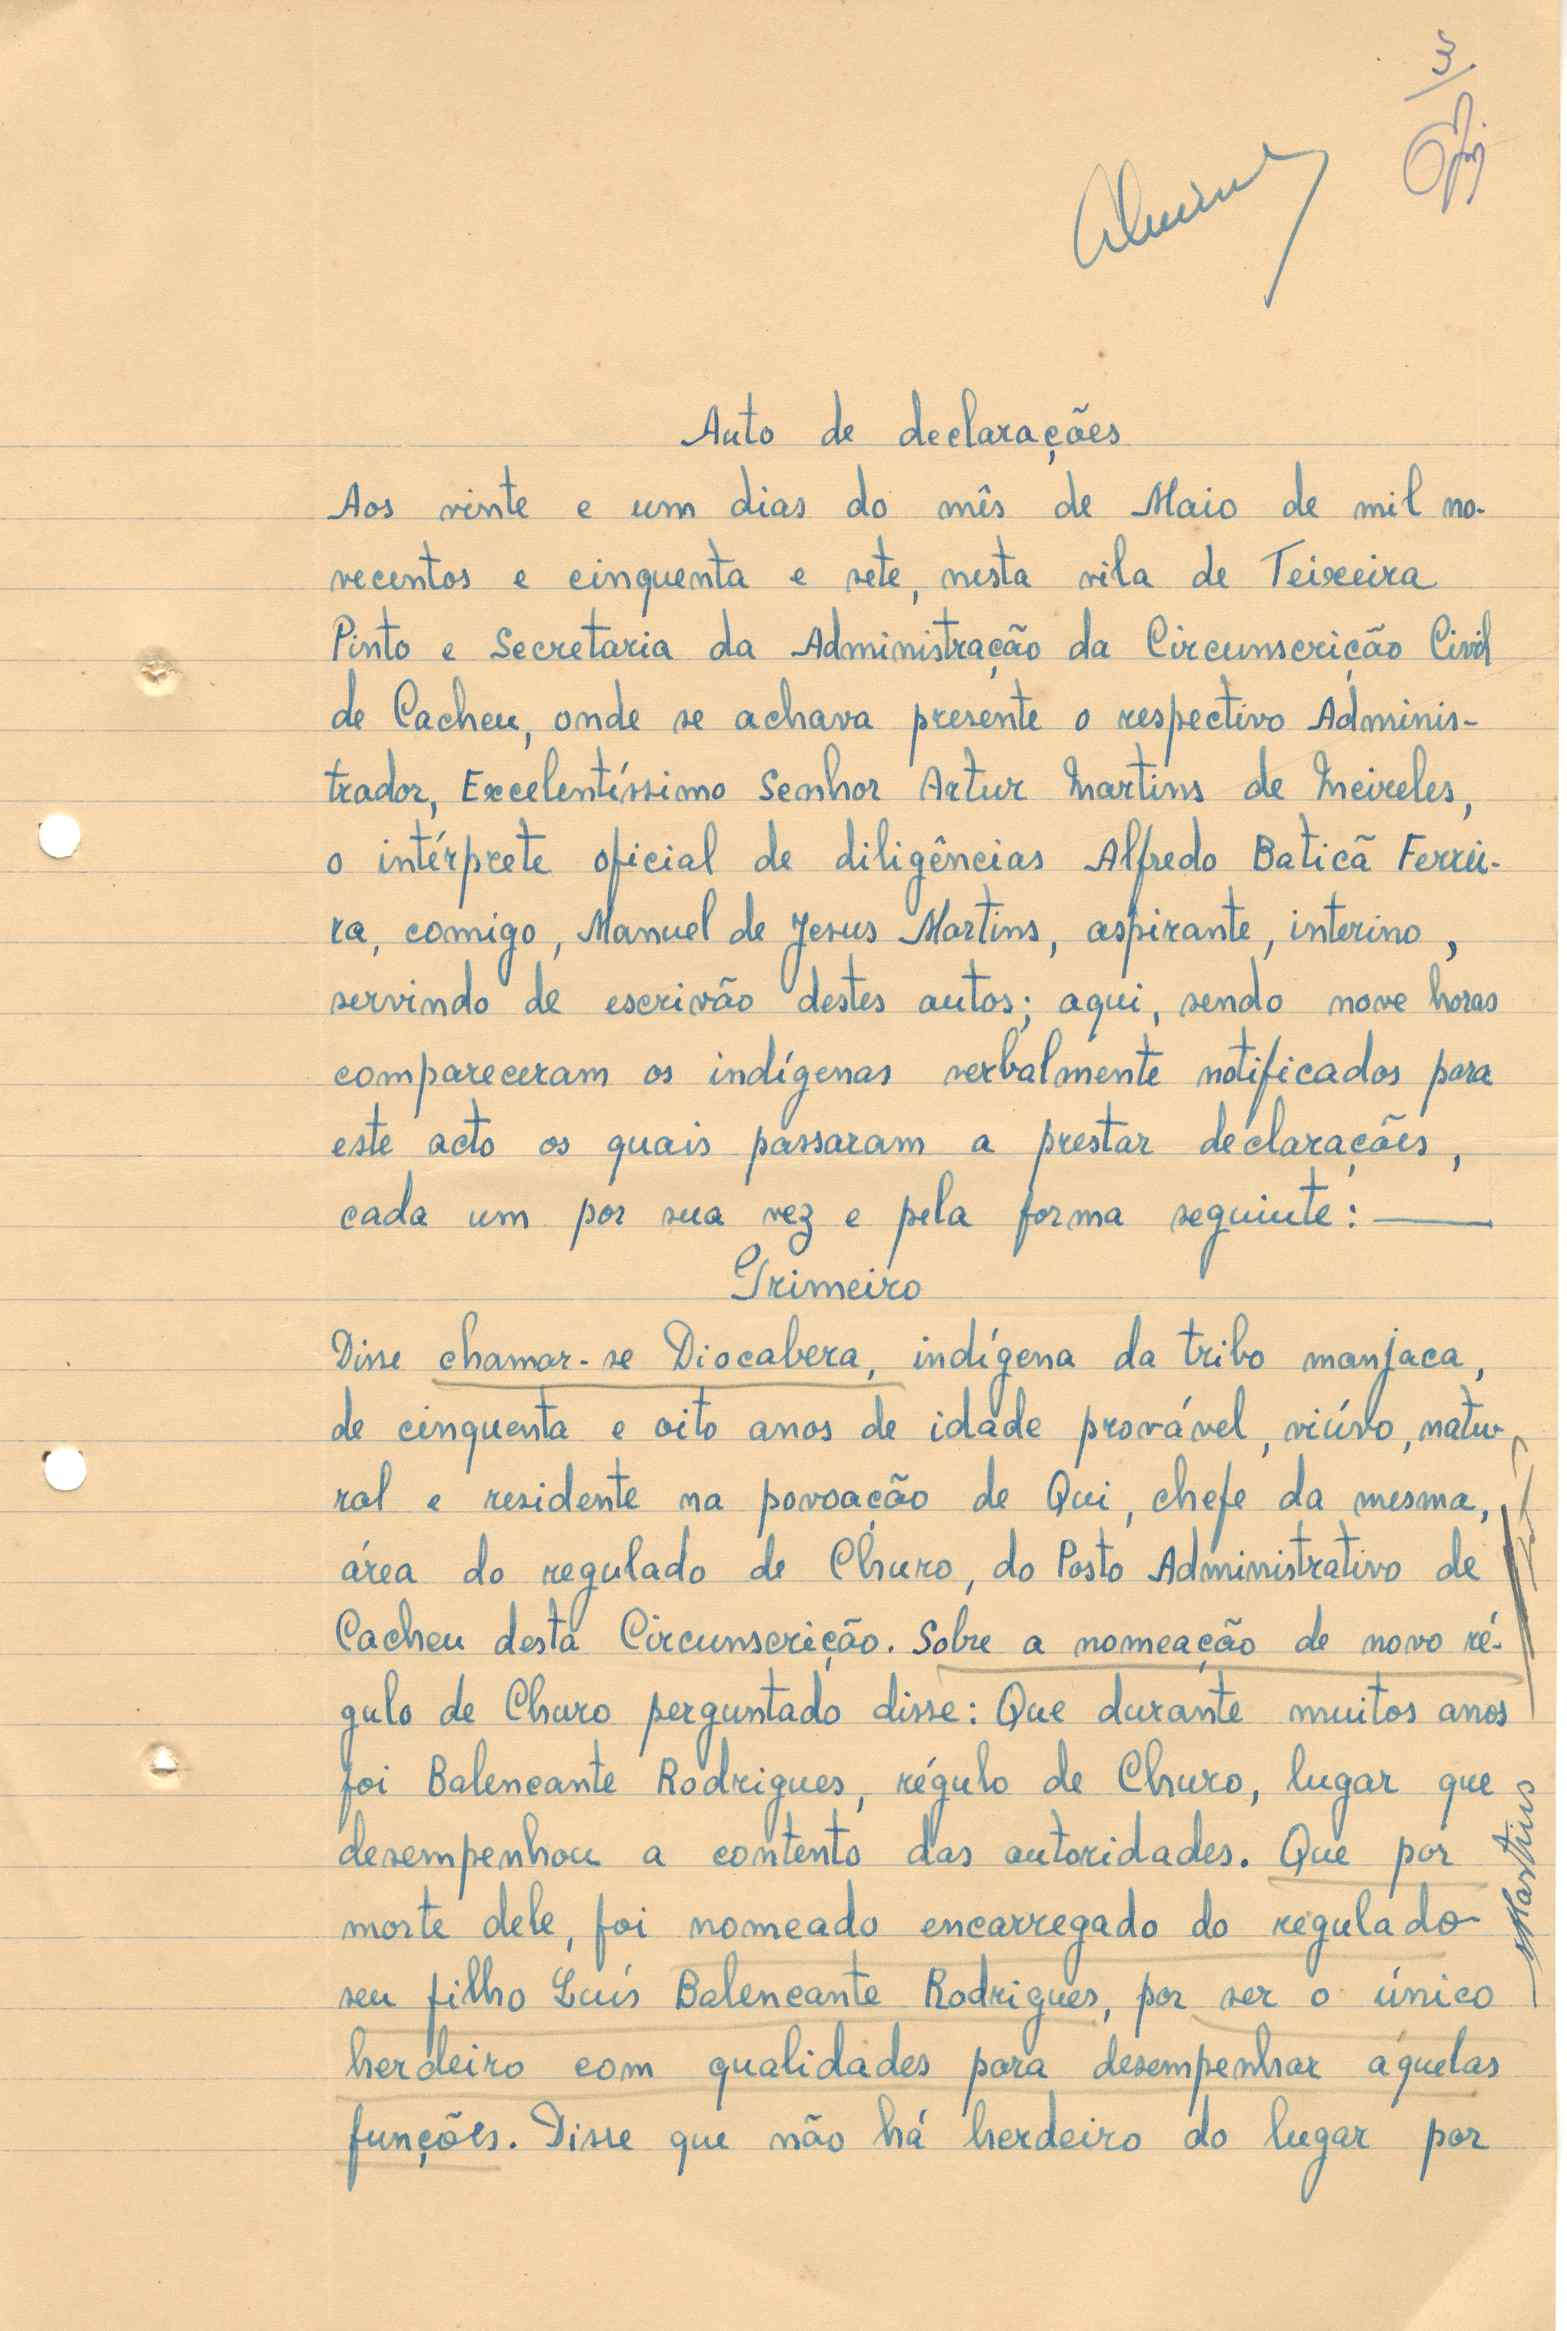 3
Auto de declarações
Aos vinte e um dias do mês de Maio de mil no-
vecentos e cinquenta e sete, nesta vila de Teixeira
Pinto e Secretaria da Administração da Circunscrição Civil
de Cacheu, onde se achava presente o respectivo Adminis-
trador, Excelentíssimo Senhor Artur Martins de Meireles,
o intérprete oficial de diligências Alfredo Baticã Ferrei-
ra, comigo, Manuel de Jesus Martins, aspirante, interino,
servindo de escrivão destes autos; aqui, sendo nove horas
compareceram os indígenas verbalmente notificados para
este acto os quais passaram a prestar declarações,
cada um por sua vez e pela forma seguinte:
Primeiro
Disse chamar-se Diocabera, indígena da tribo manjaca,
de cinquenta e oito anos de idade provável, viúvo, natu-
ral e residente na povoação de Qui, chefe da mesma,
área do regulado de Churo, do Posto Administrativo de
Cacheu desta Circunscrição. Sobre a nomeação de novo ré-
gulo de Churo perguntado disse: Que durante muitos anos
foi Balencante Rodrigues, régulo de Churo, lugar que
desempenhou a contento das autoridades. Que por
morte dele, foi nomeado encarregado do regulado
seu filho Luís Balencante Rodrigues, por ser o único
herdeiro com qualidades para desempenhar àquelas
funções. Disse que não há herdeiro do lugar por
Martins